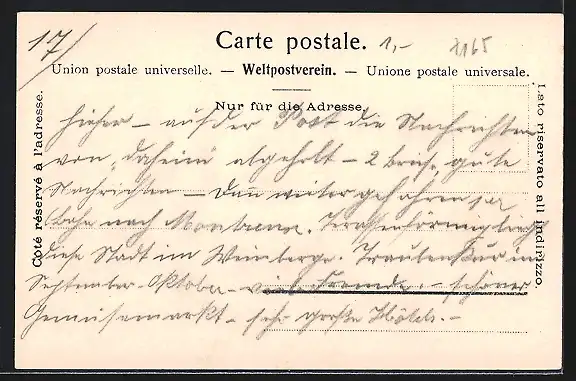 17/
Carte postale.
1,-
2165
Union postale universelle. — Weltpostverein. — Unione postale universale.
Nur für die Adresse.
Côté réservé à l'adresse.
Lato riservato all indirizzo.
hieher — auf der Post die Nachrichten
von „daheim" abgeholt — 2 gute
Nachrichten — Dann weitergefahren per
Bahn nach Montreux. Terassenförmig liegt
diese Stadt im Weinberge. Traubenkur im
September-Oktober — viele Fremde. — schöner
Gemüsemarkt — sehr große